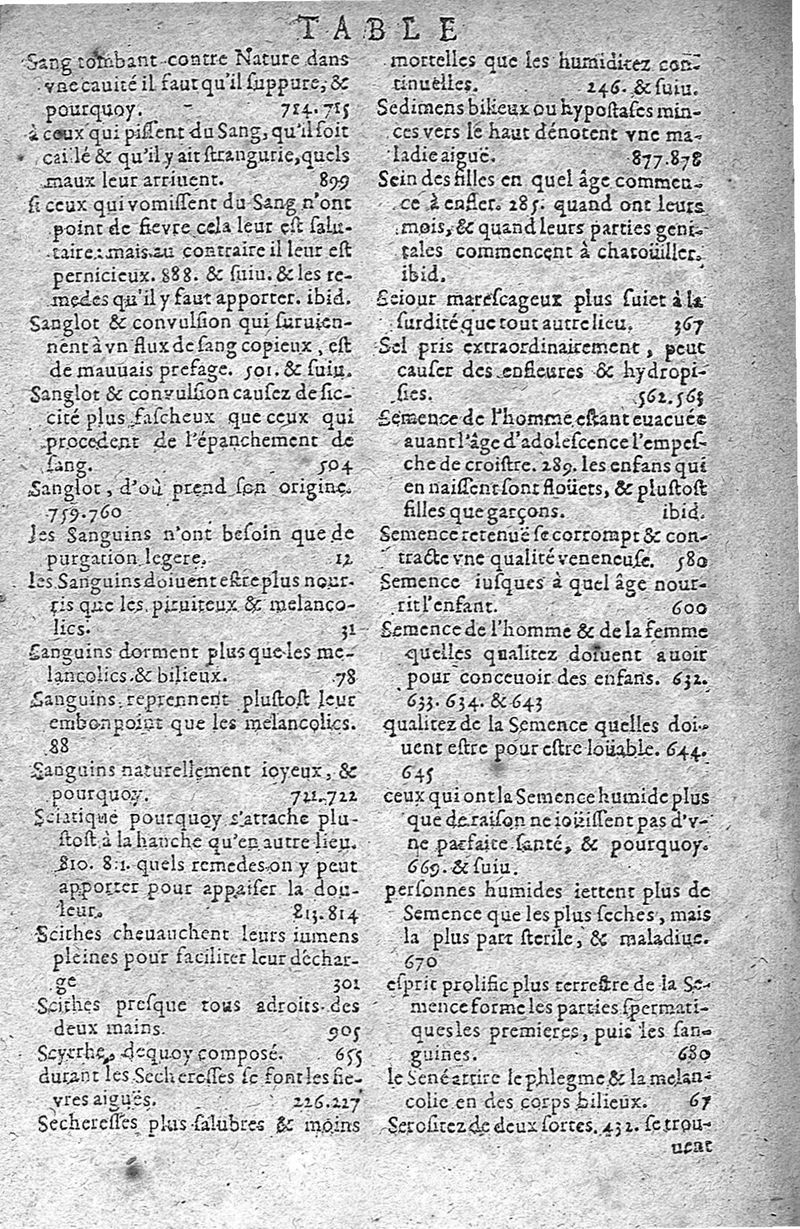 TABLE
Sang tombant contre Nature dans
vne cauité il faut qu'il suppure, &
pourquoy. 714.715
à ceux qui pissent du Sang, qu'il soit
caillé & qu'il y ait strangurie, quels
maux leur arriuent. 899
si ceux qui vomissent du Sang n'ont
point de fievre cela leur est salu-
taire: mais au contraire il leur est
pernicieux. 888. & suiu. & les re-
medes qu'il y faut apporter. ibid.
Sanglot & convulsion qui suruien-
nent à vn flux de sang copieux, est
de mauuais presage. 501. & suiu.
Sanglot & convulsion causez de sic-
cité plus fascheux que ceux qui
procedent de l'épanchement de
sang. 504
Sanglot, d'où prend son origine.
759.760
les Sanguins n'ont besoin que de
purgation legere. 12
les Sanguins doiuent estre plus nour-
ris que les pituiteux & melanco-
lics. 31
Sanguins dorment plus que les me-
lancolics & bilieux. 78
Sanguins reprennent plustost leur
embonpoint que les melancolics.
88
Sanguins naturellement ioyeux, &
pourquoy. 721.722
Sciatique pourquoy s'attache plu-
stost à la hanche qu'en autre lieu.
810. 811. quels remedes on y peut
apporter pour appaiser la dou-
leur. 813.814
Scithes cheuauchent leurs iumens
pleines pour faciliter leur déchar-
ge 301
Scithes presque tous adroits des
deux mains. 905
Scyrrhe, dequoy composé. 655
durant les Secheresses se font les fie-
vres aiguës. 226.227
Secheresses plus salubres & moins
mortelles que les humiditez con-
tinuelles. 246. & suiu.
Sedimens bilieux ou hypostases min-
ces vers le haut dénotent vne ma-
ladie aiguë. 877.878
Sein des filles en quel âge commen-
ce à enfler. 285. quand ont leurs
mois, & quand leurs parties geni-
tales commencent à chatoüiller.
ibid.
Seiour marescageux plus suiet à la
surdité que tout autre lieu. 367
Sel pris extraordinairement, peut
causer des enfleures & hydropi-
sies. 562.563
Semence de l'homme estant euacuée
auant l'âge d'adolescence l'empes-
che de croistre. 289. les enfans qui
en naissent sont floüets, & plustost
filles que garçons. ibid.
Semence retenuë se corrompt & con-
tracte vne qualité veneneuse. 580
Semence iusques à quel âge nour-
rit l'enfant. 600
Semence de l'homme & de la femme
quelles qualitez doiuent auoir
pour conceuoir des enfans. 632.
633. 634. & 643
qualitez de la Semence quelles doi-
uent estre pour estre loüable. 644.
645
ceux qui ont la Semence humide plus
que de raison ne ioüissent pas d'v-
ne parfaite santé, & pourquoy.
669. & suiu.
personnes humides iettent plus de
Semence que les plus seches, mais
la plus part sterile, & maladiue.
670
esprit prolific plus terrestre de la Se-
mence forme les parties spermati-
ques les premieres, puis les san-
guines. 680
le Sené attire le phlegme & la melan-
colie en des corps bilieux. 67
Serositez de deux sortes. 432. se trou-
uent